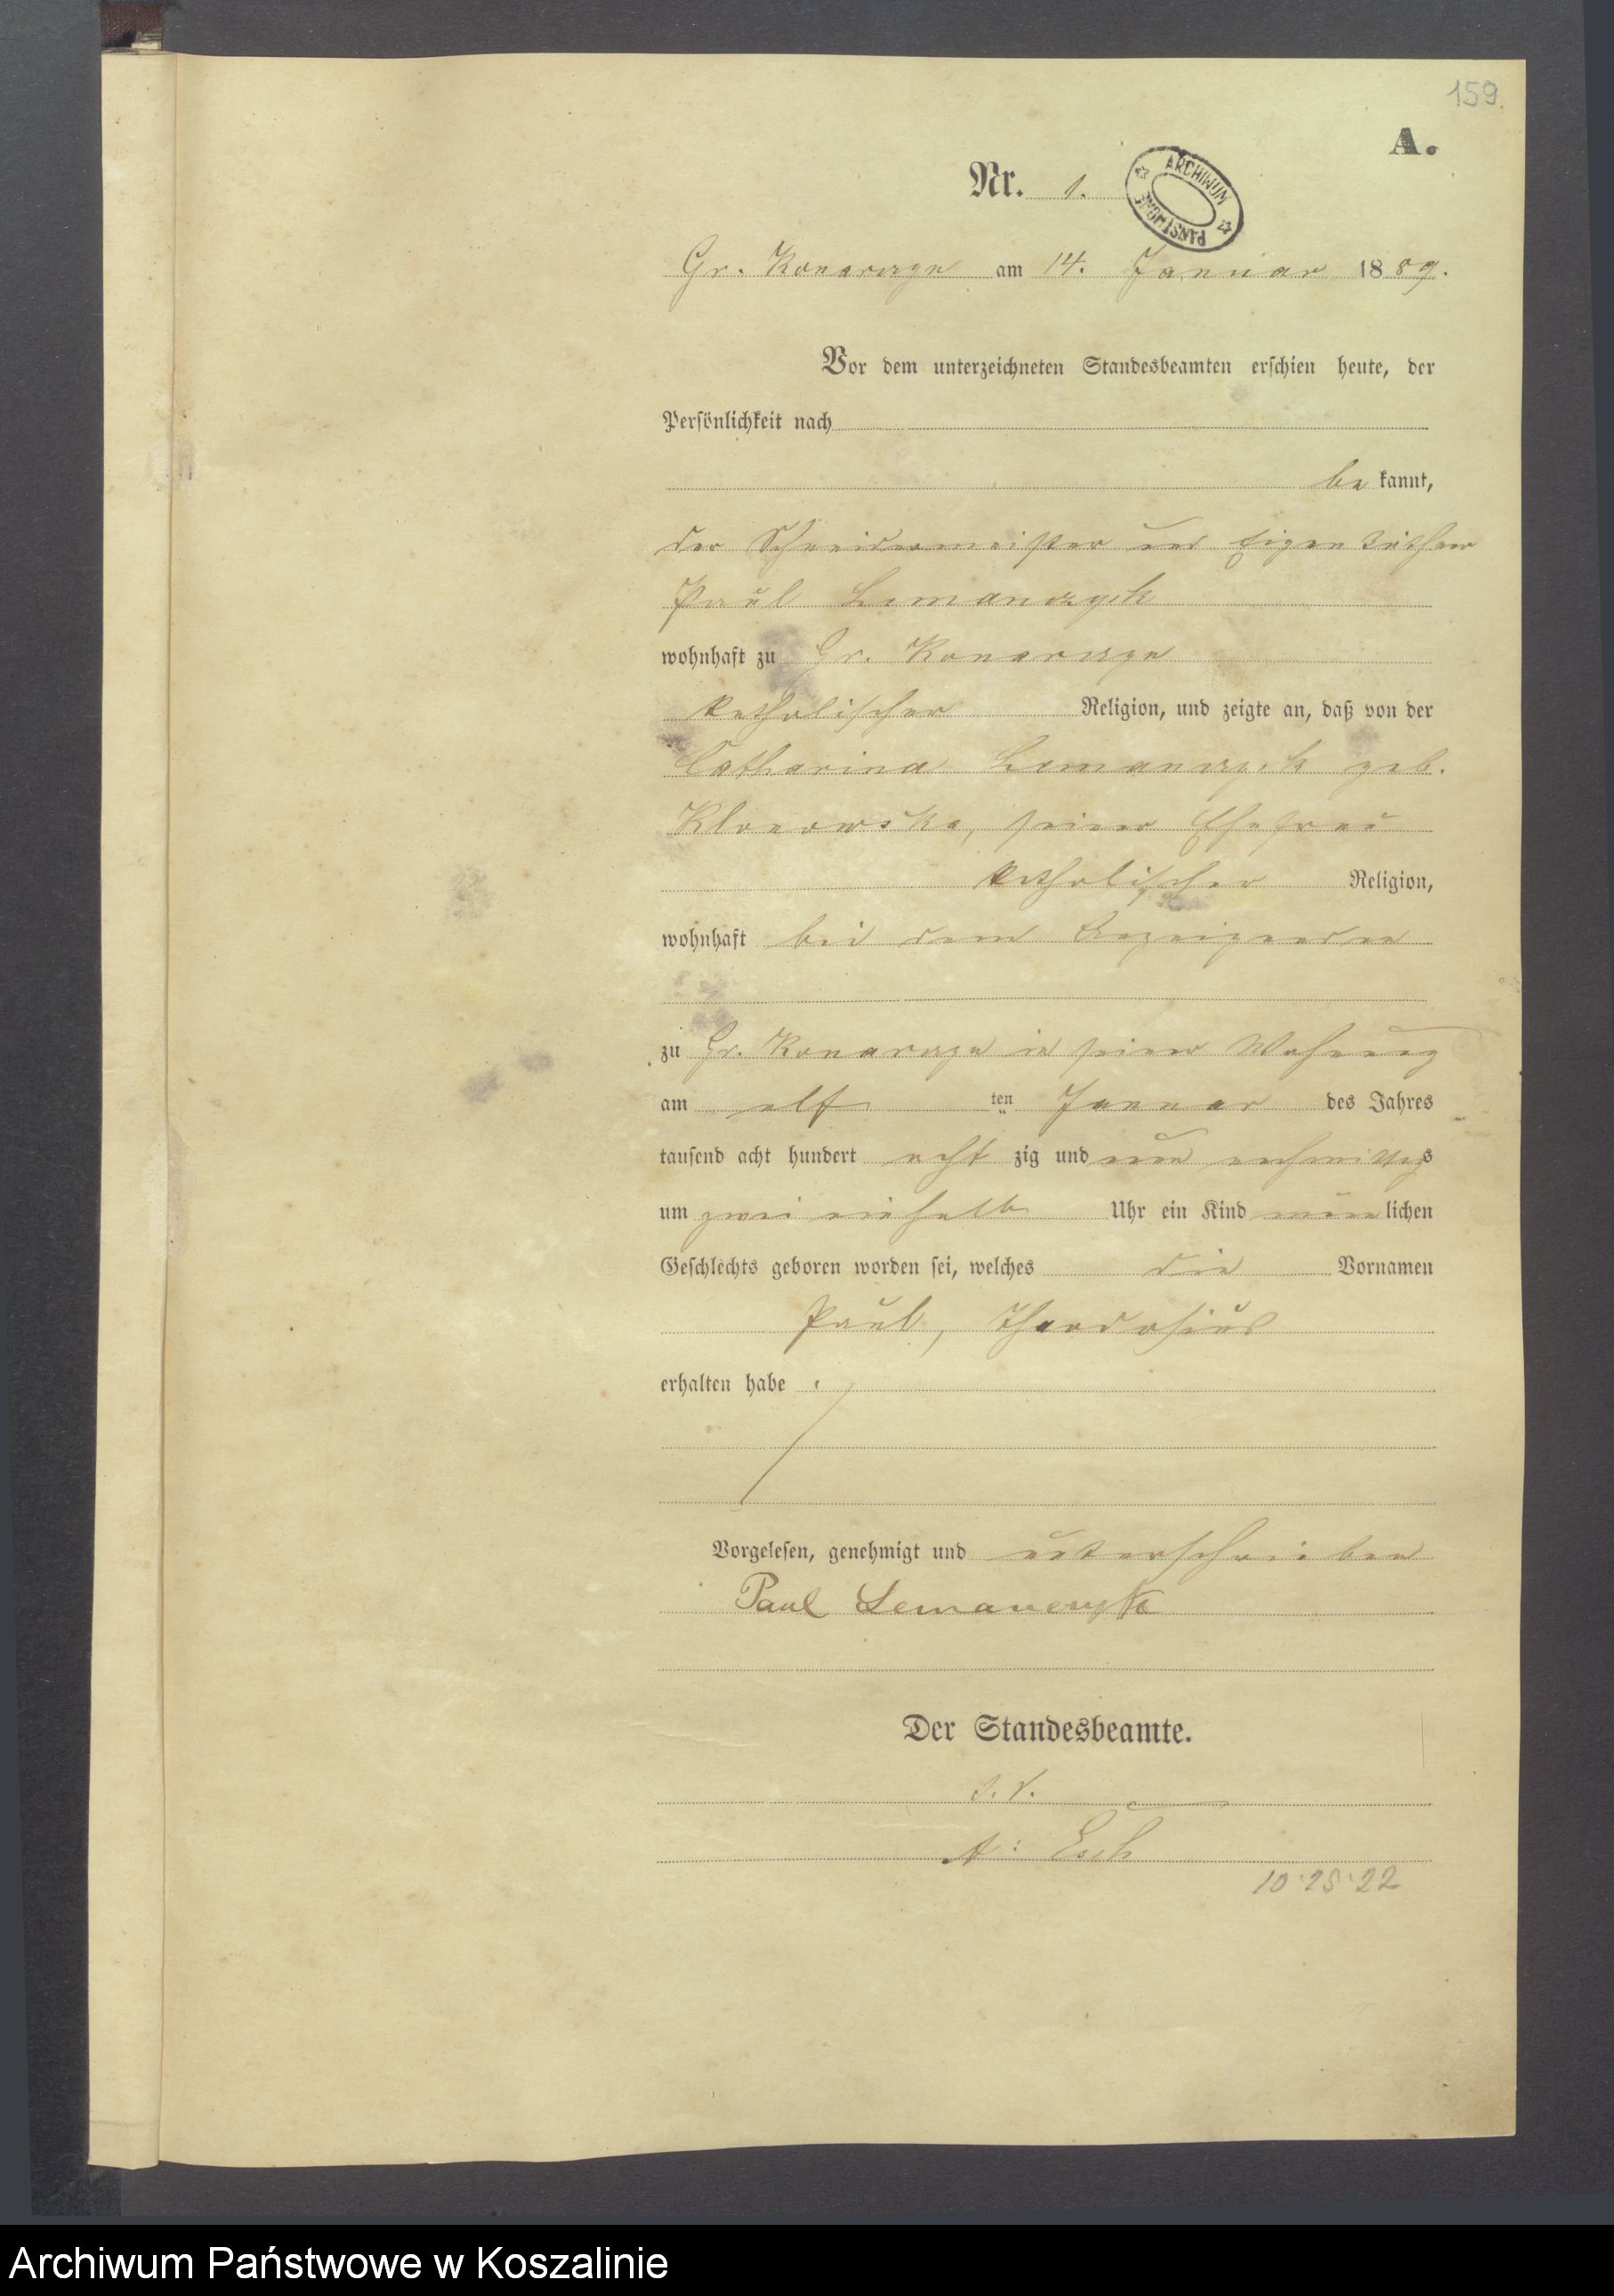 159.
A.
Nr. 1.
ARCHIWUM PAŃSTWOWE
Gr. Konarczyn am 14. Januar 1889.
Vor dem unterzeichneten Standesbeamten erschien heute, der
Persönlichkeit nach
be kannt,
der Schneidermeister und Eigenthümer
Paul Lemanczyk
wohnhaft zu Gr. Konarczyn
katholischer Religion, und zeigte an, daß von der
Catharina Lemanczyk geb.
Klonowska, seiner Ehefrau
katholischer Religion,
wohnhaft bei dem Anzeigenden
zu Gr. Konarczyn in seiner Wohnung
am elf ten Januar des Jahres
tausend acht hundert acht zig und neun nachmittags
um zwei einhalb Uhr ein Kind männlichen
Geschlechts geboren worden sei, welches die Vornamen
Paul, Theodosius
erhalten habe.
Vorgelesen, genehmigt und unterschrieben
Paul Lemanczyk
Der Standesbeamte.
A: Esch
10·25·22
Archiwum Państwowe w Koszalinie